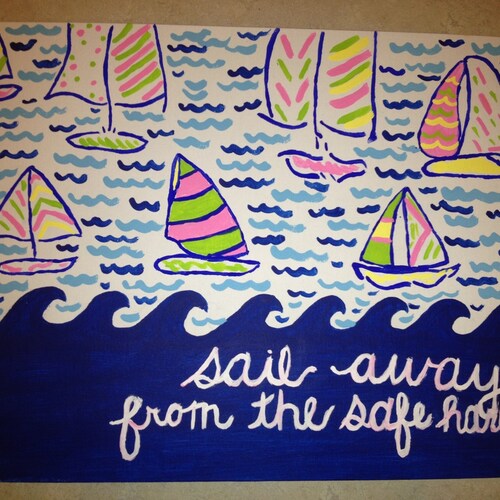 sail away
from the safe har